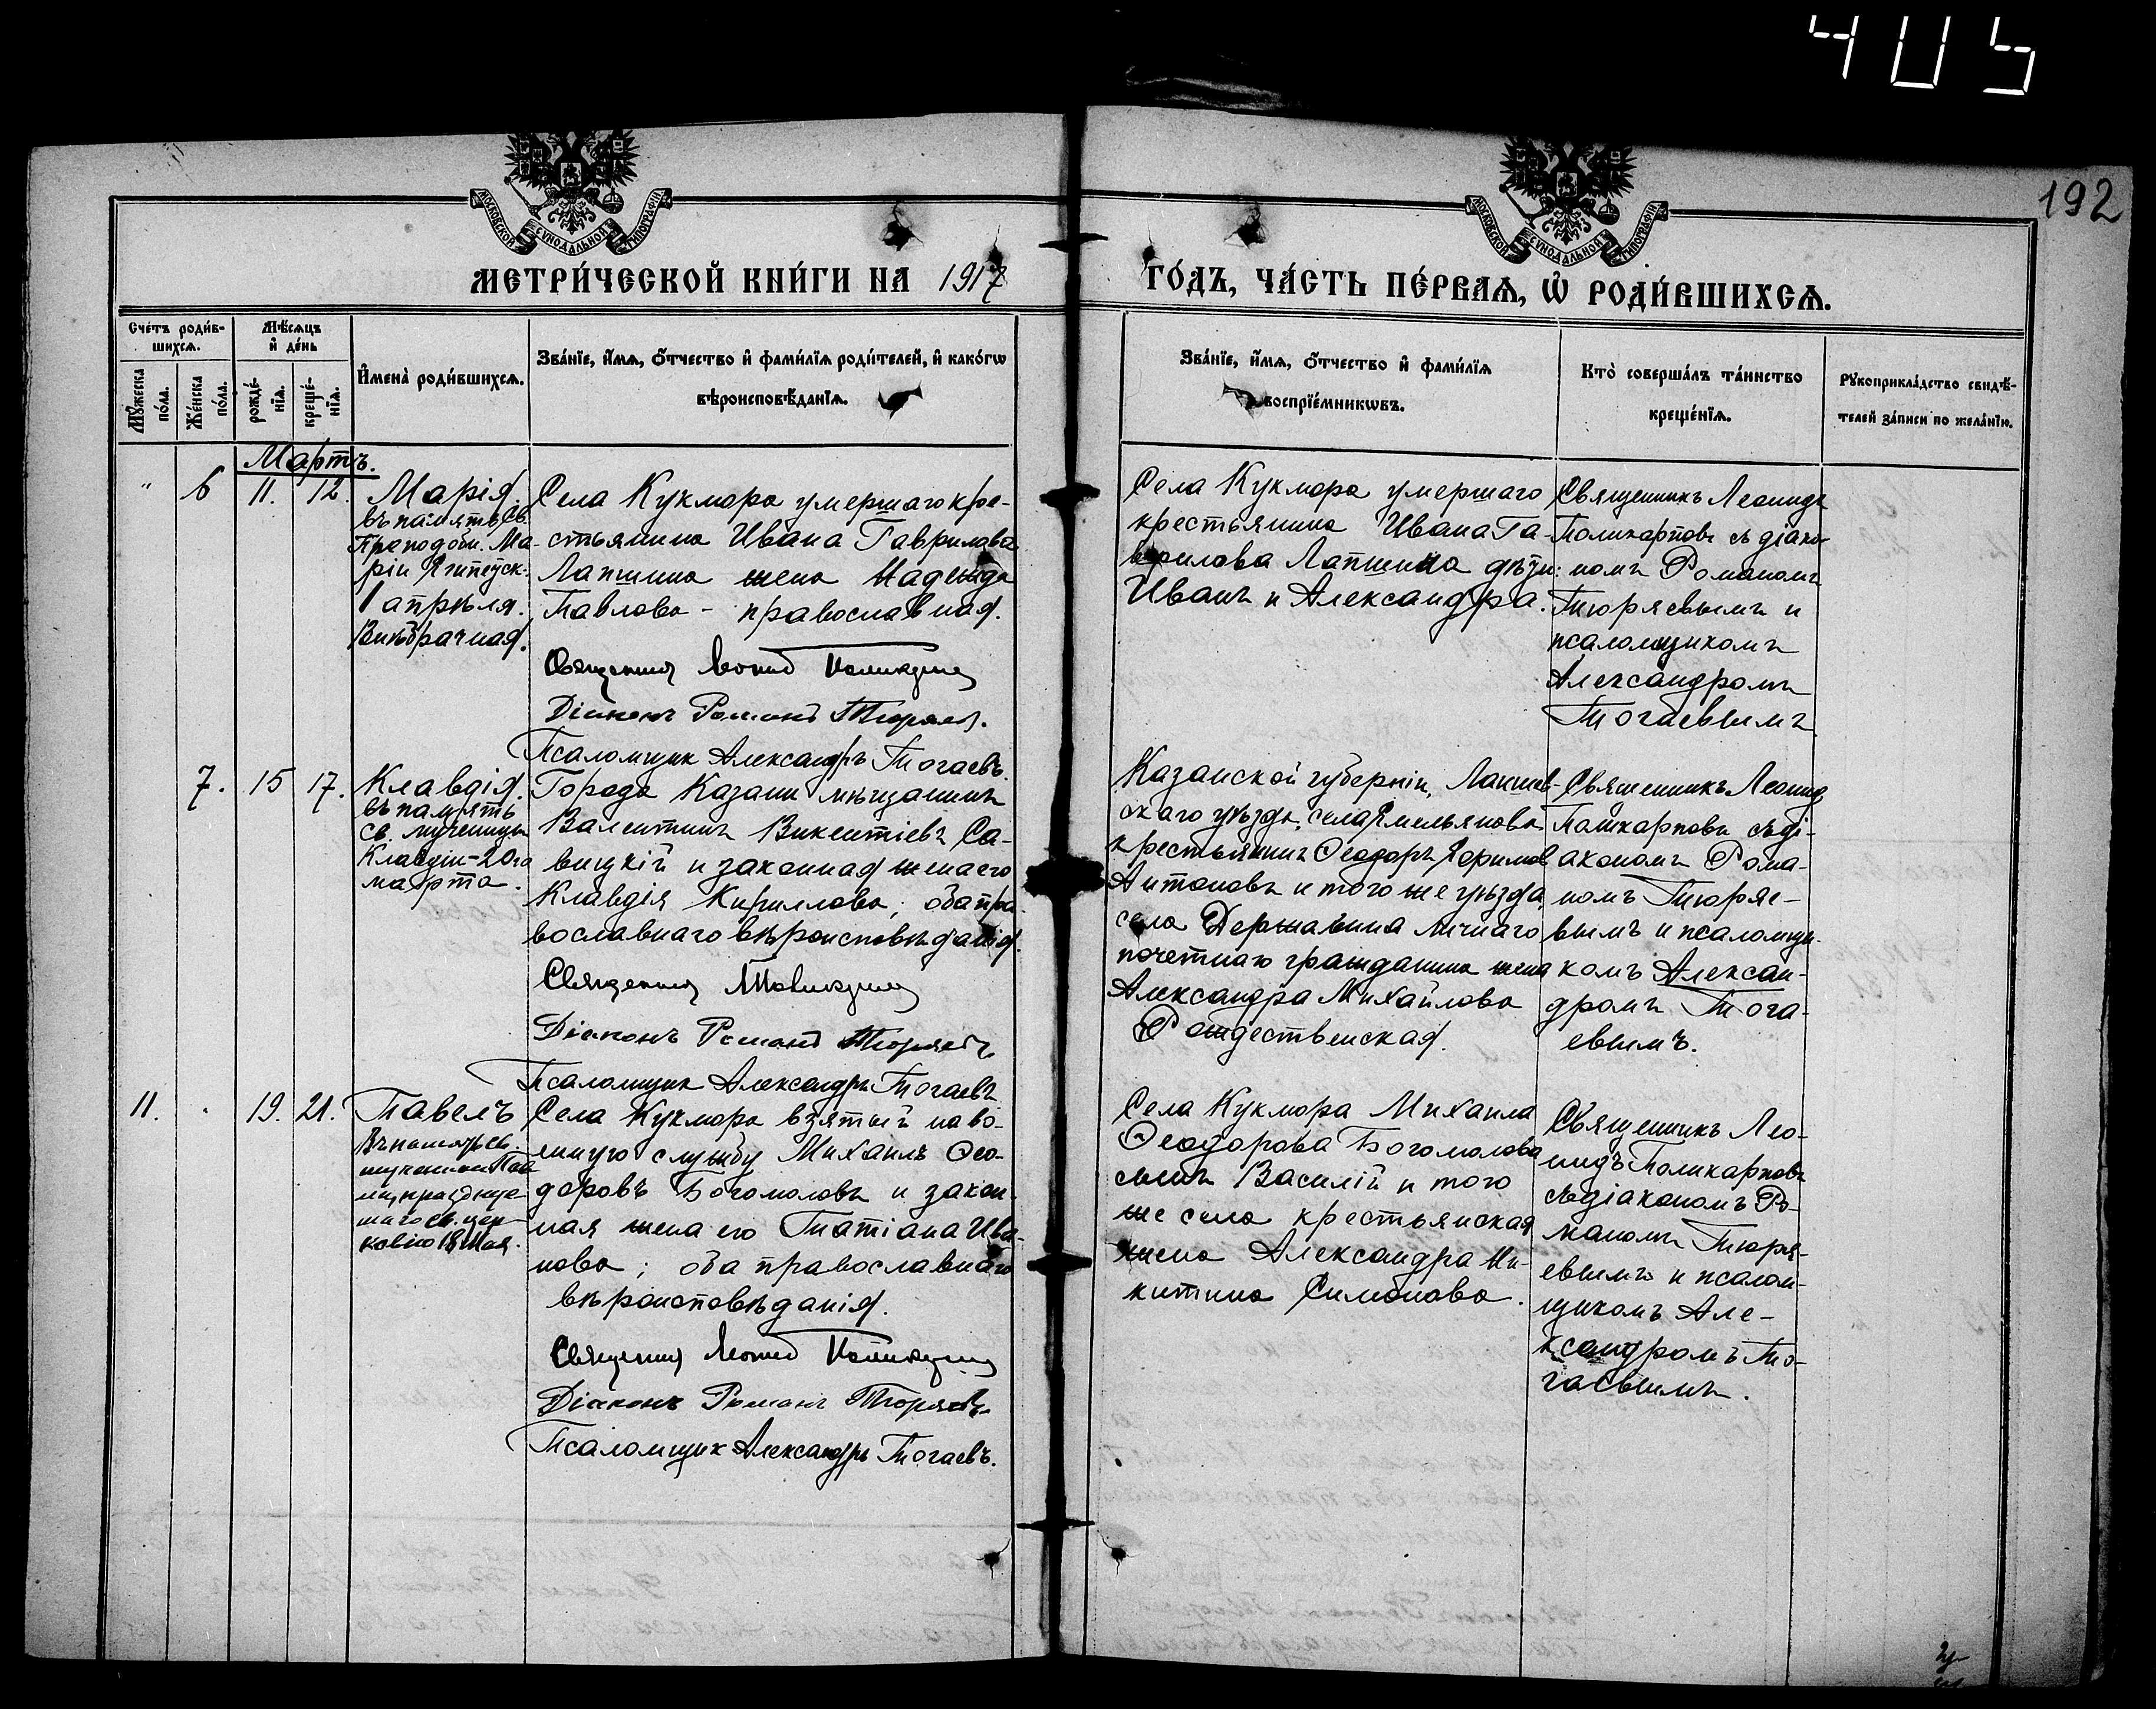 405
192
МОСКОВСКОЙ СѴНОДАЛЬНОЙ ТИПОГРАФІИ
МОСКОВСКОЙ СѴНОДАЛЬНОЙ ТИПОГРАФІИ
МЕТРИ́ЧЕСКОЙ КНИ́ГИ НА 1917
ГО́ДЪ, ЧА́СТЬ ПЕ́РВАѦ, Ѡ҆ РОДИ́ВШИХСѦ.
Сче́тъ роди́в-
шихсѧ.
Мѣ́сѧцъ
и҆ де́нь
Мꙋ́жеска по́ла.
Же́нска по́ла.
рожде́-
нїѧ.
креще́-
нїѧ.
И҆мена̀ роди́вшихсѧ.
Зва́нїе, и҆́мѧ, ѻ҆́тчество и҆ фами́лїѧ роди́телей, и҆ како́гѡ
вѣроисповѣ́данїѧ.
Зва́нїе, и҆́мѧ, ѻ҆́тчество и҆ фами́лїѧ
воспрїе́мникѡвъ.
Кто̀ соверша́лъ та́инство
креще́нїѧ.
Рꙋкоприкла́дство свидѣ́-
телей за́писи по жела́нїю.
Мартъ.
" 6 11. 12.
Марія.
въ память Св.
Преподобн. Ма-
ріи Египетск.
1 апрѣля.
Внѣбрачная.
Села Кукмора умершаго кре-
стьянина Ивана Гаврилова
Лапшина жена Надежда
Павлова - православная.
Священникъ Леонид Поликарпов
Діаконъ Романъ Тюряевъ.
Псаломщик Александръ Тогаевъ.
Села Кукмора умершаго
крестьянина Ивана Га-
врилова Лапшина дѣти:
Иванъ и Александра.
Священникъ Леонидъ
Поликарповъ съ діако-
номъ Романомъ
Тюряевымъ и
псаломщикомъ
Александромъ
Тогаевымъ
7. 15 17.
Клавдія.
въ память
св. мученицы
Клавдіи - 20го
марта.
Города Казани мѣщанинъ
Валентинъ Викентіевъ Са-
вицкій и законная жена его
Клавдія Кириллова; оба пра-
вославнаго вѣроисповѣданія.
Священникъ Поликарпов
Діаконъ Романъ Тюряевъ
Псаломщик Александръ Тогаевъ
Казанской губерніи, Лаишев-
скаго уѣзда, села Емельянова
крестьянинъ Ѳеодоръ Ефимов
Антоновъ и того же уѣзда,
села Державина личнаго
почетнаго гражданина жена
Александра Михайлова
Рождественская.
Священникъ Леонид
Поликарповъ съ ді-
акономъ Рома-
номъ Тюряе-
вымъ и псаломщи-
комъ Алексан-
дромъ Тога-
евымъ.
11. " 19. 21.
Павелъ
Въ память св.
мученика Пав
ла, празднуе-
маго св. цер-
ковію 18 Мая.
Села Кукмора взятый на во-
енную службу Михаилъ Ѳео-
доровъ Богомоловъ и закон-
ная жена его Татіана Ива-
нова; оба православнаго
вѣроисповѣданія.
Священникъ Леонид Поликарпов
Діаконъ Романъ Тюряевъ
Псаломщик Александръ Тогаевъ.
Села Кукмора Михаила
Ѳеодорова Богомолова
сынъ Василій и того
же села крестьянская
жена Александра Ни-
китина Симонова.
Священникъ Лео-
нидъ Поликарповъ
съ діакономъ Ро-
маномъ Тюря-
евымъ и псалом-
щикомъ Але-
ксандромъ То-
гаевымъ.